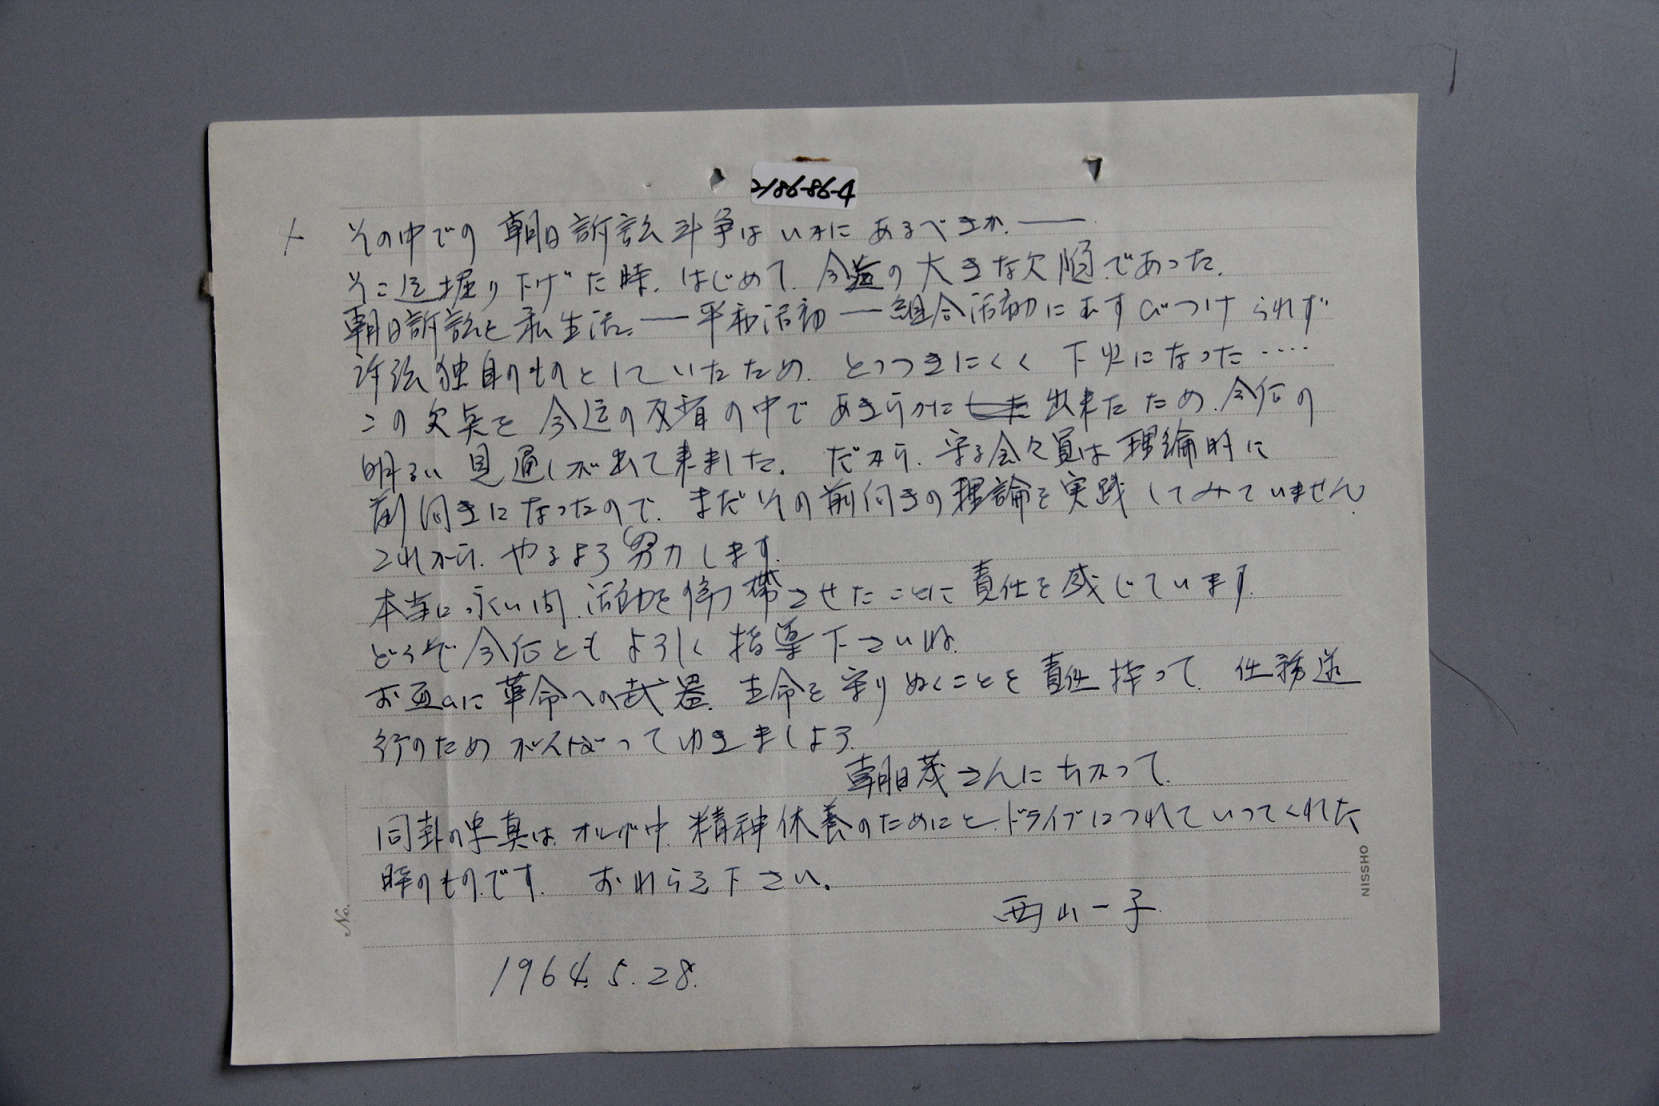 2186-86-4
その中での 朝日訴訟斗争は いかに あるべきか. ――
そこ迄掘り下げた時. はじめて. 今迄の 大きな欠陥であった.
朝日訴訟と 私生活. ― 平和活動 ― 組合活動に むすびつけ られず
訴訟独自のものとしていたため. とっつきにくく 下火になった ‥‥
この 欠点を 今迄の反省の中で あきらかに 出来たため. 今后の
明るい 見通しが出て来ました. だから. 守る会々員は 理論的に
前向きになったので. まだその前向きの理論を実践 してみていません
これから. やるよう 努力します.
本当に 永い間. 活動を 停滞させたことに 責任を感じています.
どうぞ 今后とも よろしく 指導 下さいね.
お互いに 革命への武器. 生命を 守りぬくことを 責任 持って. 任務遂
行のため がんばって ゆきましょう.
朝日茂さんに ちかって.
同封の写真は. オルグ中. 精神休養のためにと. ドライブにつれていってくれた
時のものです. おわらえ下さい.
西山一子
1964. 5. 28.
No.
NISSHO